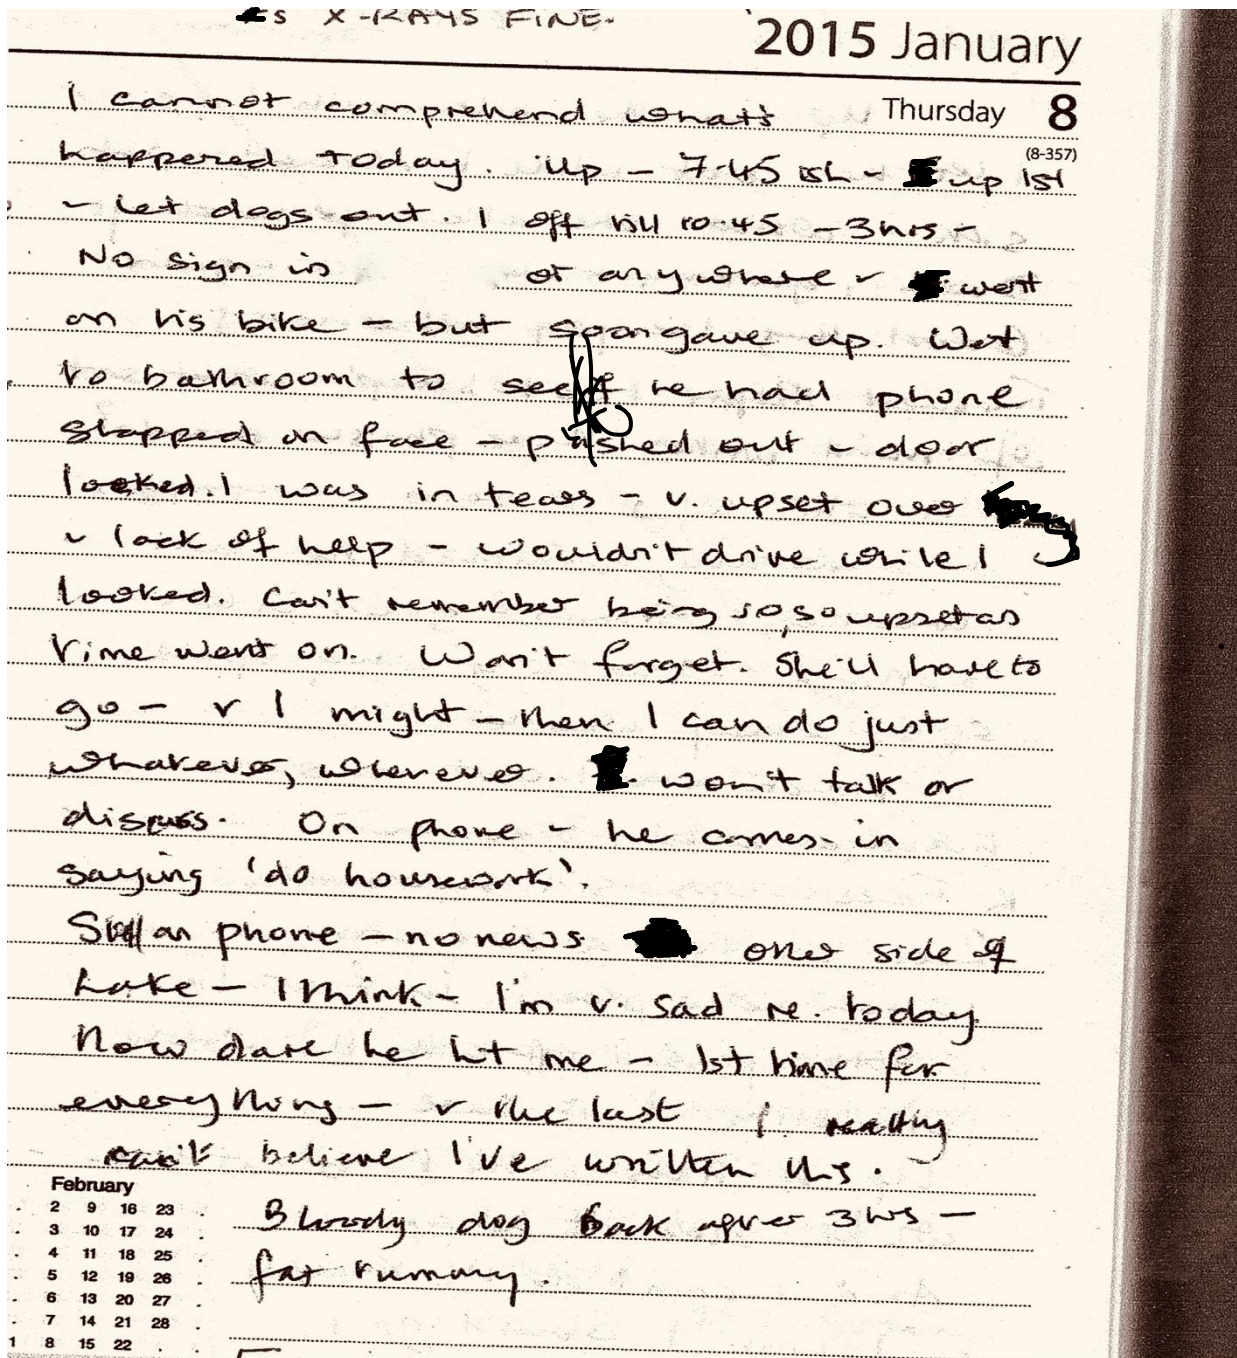 s X-RAYS FINE.
2015 January
Thursday 8
(8-357)
I cannot comprehend what's
happened today. Up - 7.45 ish - up 1st
- Let dogs out. I off till 10.45 - 3hrs -
No sign in or anywhere went
on his bike - but soon gave up. Went
to bathroom to see if he had phone
slapped on face - pushed out - door
locked. I was in tears - v. upset over
lack of help - wouldn't drive while I
looked. Can't remember being so, so upset as
time went on. Won't forget. She'll have to
go - I might - then I can do just
whatever, wherever. won't talk or
discuss. On phone - he comes in
saying 'do housework'.
Still on phone - no news other side of
Lake - I think - I'm v. sad re. today
How dare he hit me - 1st time for
everything - the last I really
can't believe I've written this.
Bloody dog back after 3 hrs -
fat tummy.
February
2 9 16 23
3 10 17 24
4 11 18 25
5 12 19 26
6 13 20 27
7 14 21 28
1 8 15 22